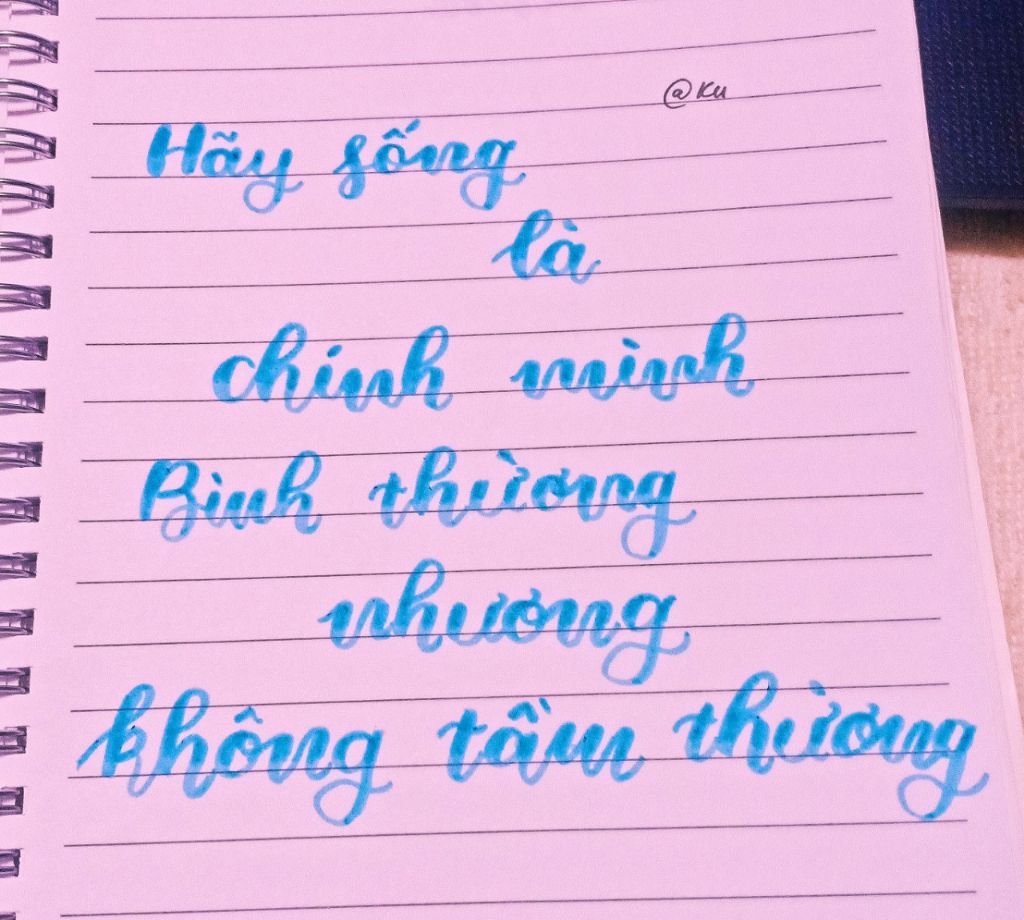 @Ku
Hãy sống
là
chính mình
Bình thường
nhương
không tầm thường